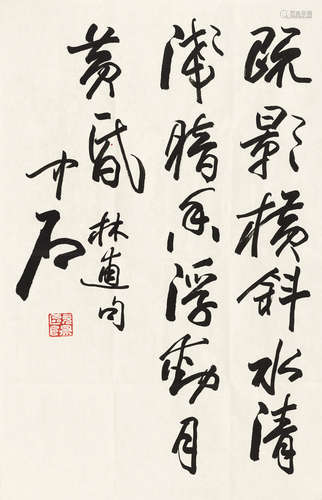 疏影横斜水清
浅暗香浮动月
黄昏
林逋句
中石